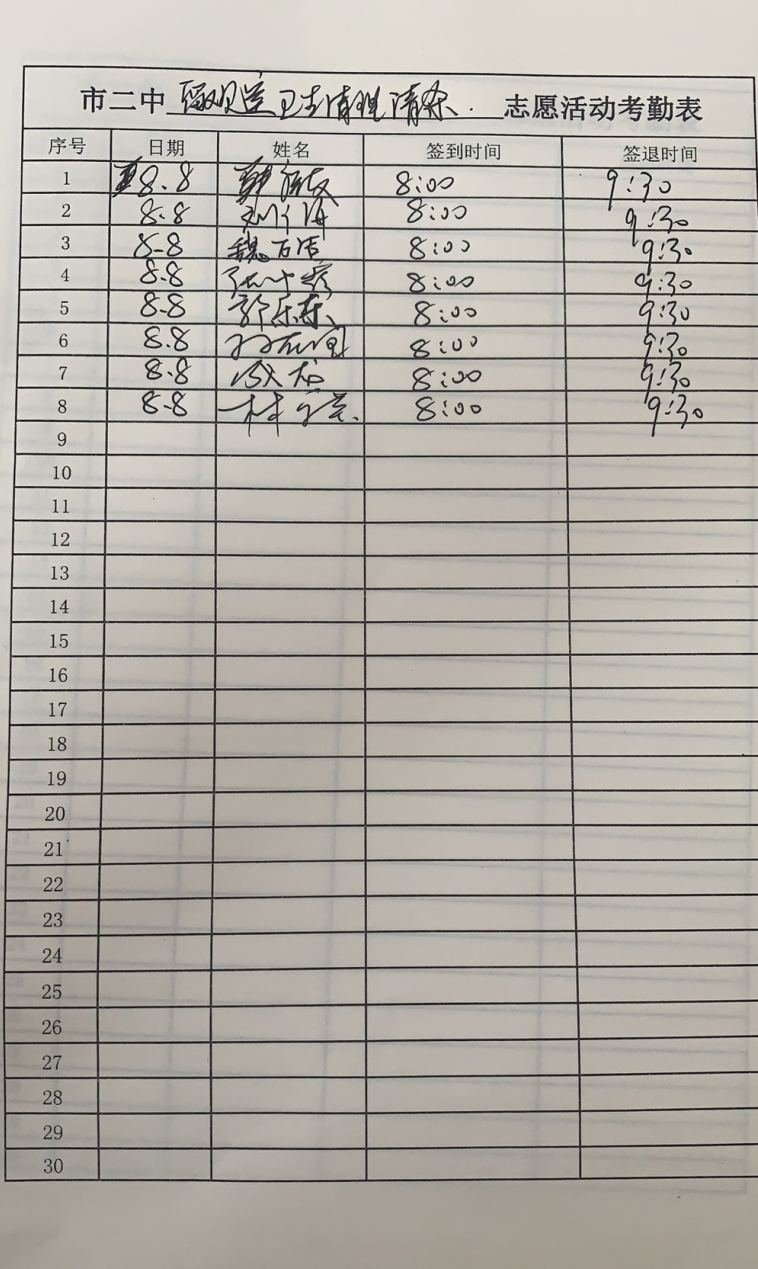 市二中 卫生清理清杂. 志愿活动考勤表
序号 日期 姓名 签到时间 签退时间
1 8.8 8:00 9:30
2 8.8 8:00 9:30
3 8-8 8:00 9:30
4 8.8 8:00 9:30
5 8.8 8:00 9:30
6 8.8 8:00 9:30
7 8.8 8:00 9:30
8 8-8 8:00 9:30
9
10
11
12
13
14
15
16
17
18
19
20
21
22
23
24
25
26
27
28
29
30